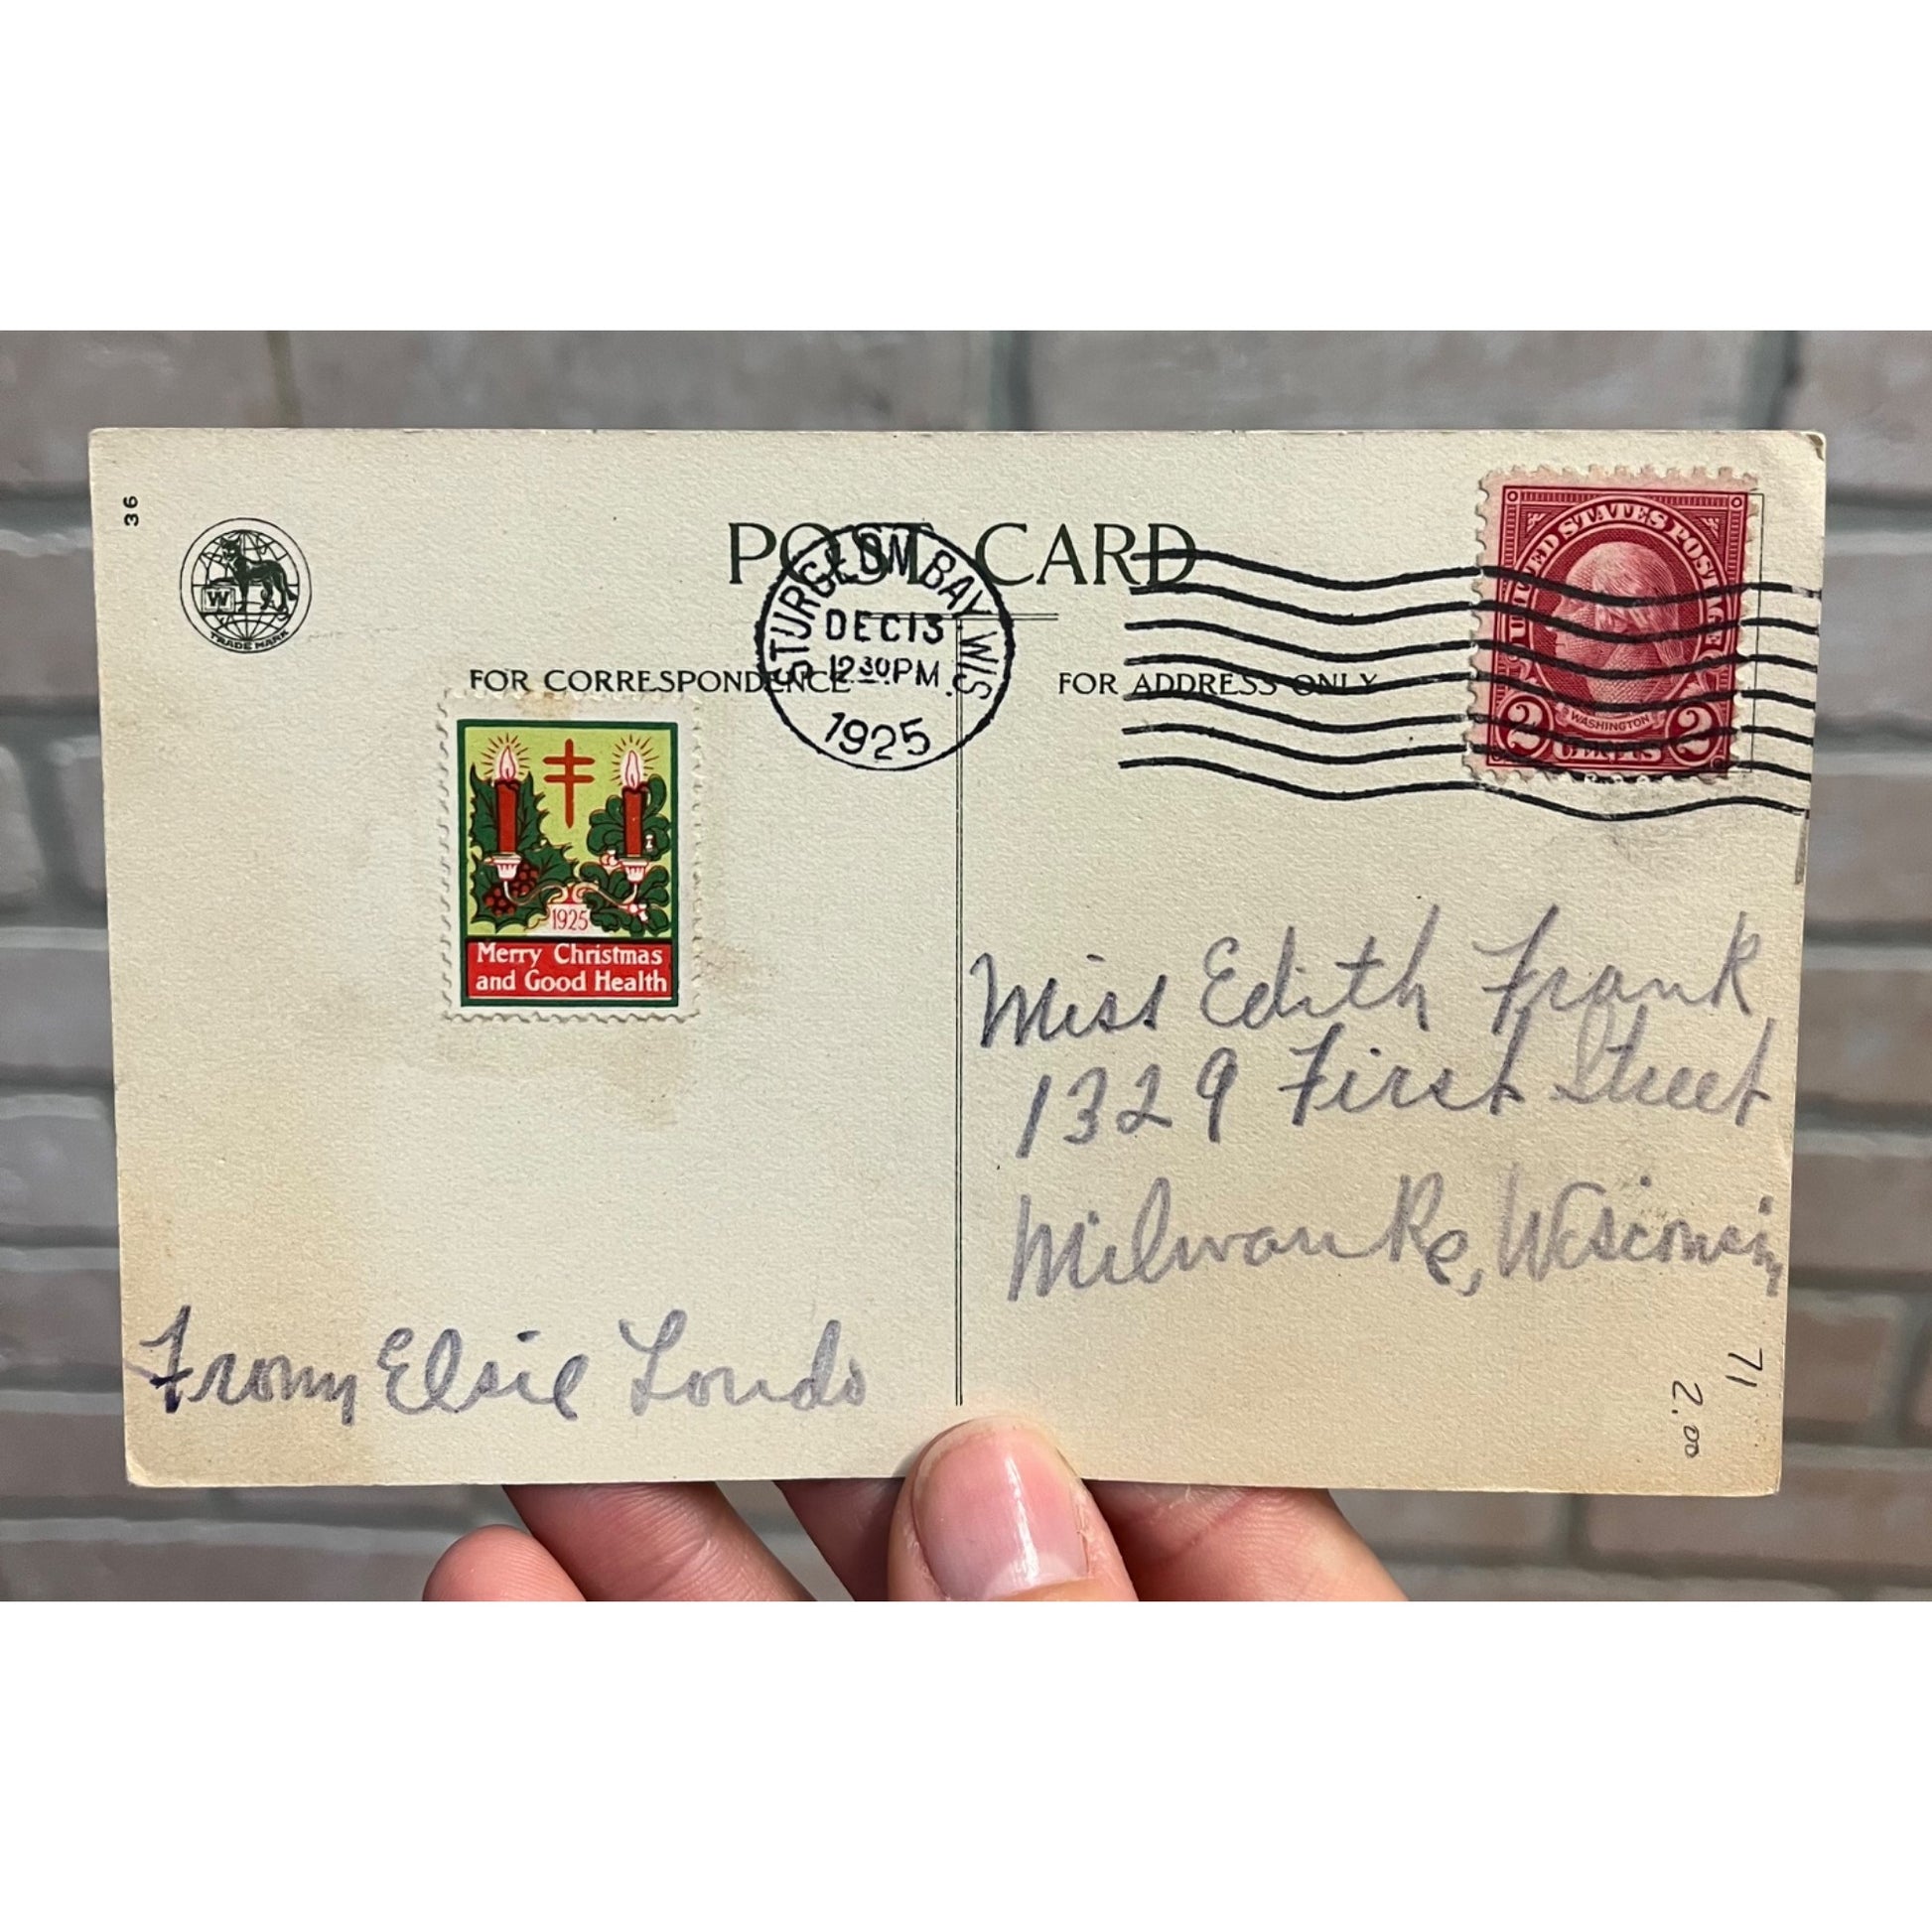 36
W
TRADE MARK
POST CARD
STURGEON BAY, WIS.
DEC 13
12 30 PM
1925
FOR CORRESPONDENCE
FOR ADDRESS ONLY
UNITED STATES POSTAGE
WASHINGTON
2 CENTS 2
1925
Merry Christmas
and Good Health
Miss Edith Frank
1329 First Street
Milwauke, Wisconsin
From Elsie Londo
71
2.00